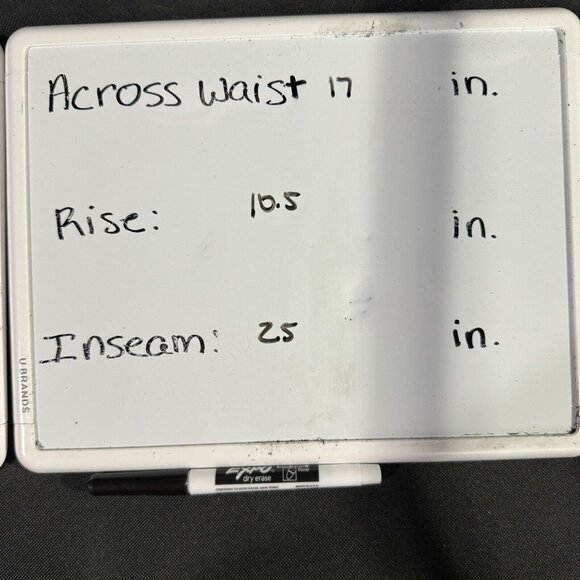 Across Waist 17 in.
Rise: 10.5 in.
Inseam: 25 in.
U BRANDS
EXPO
dry erase